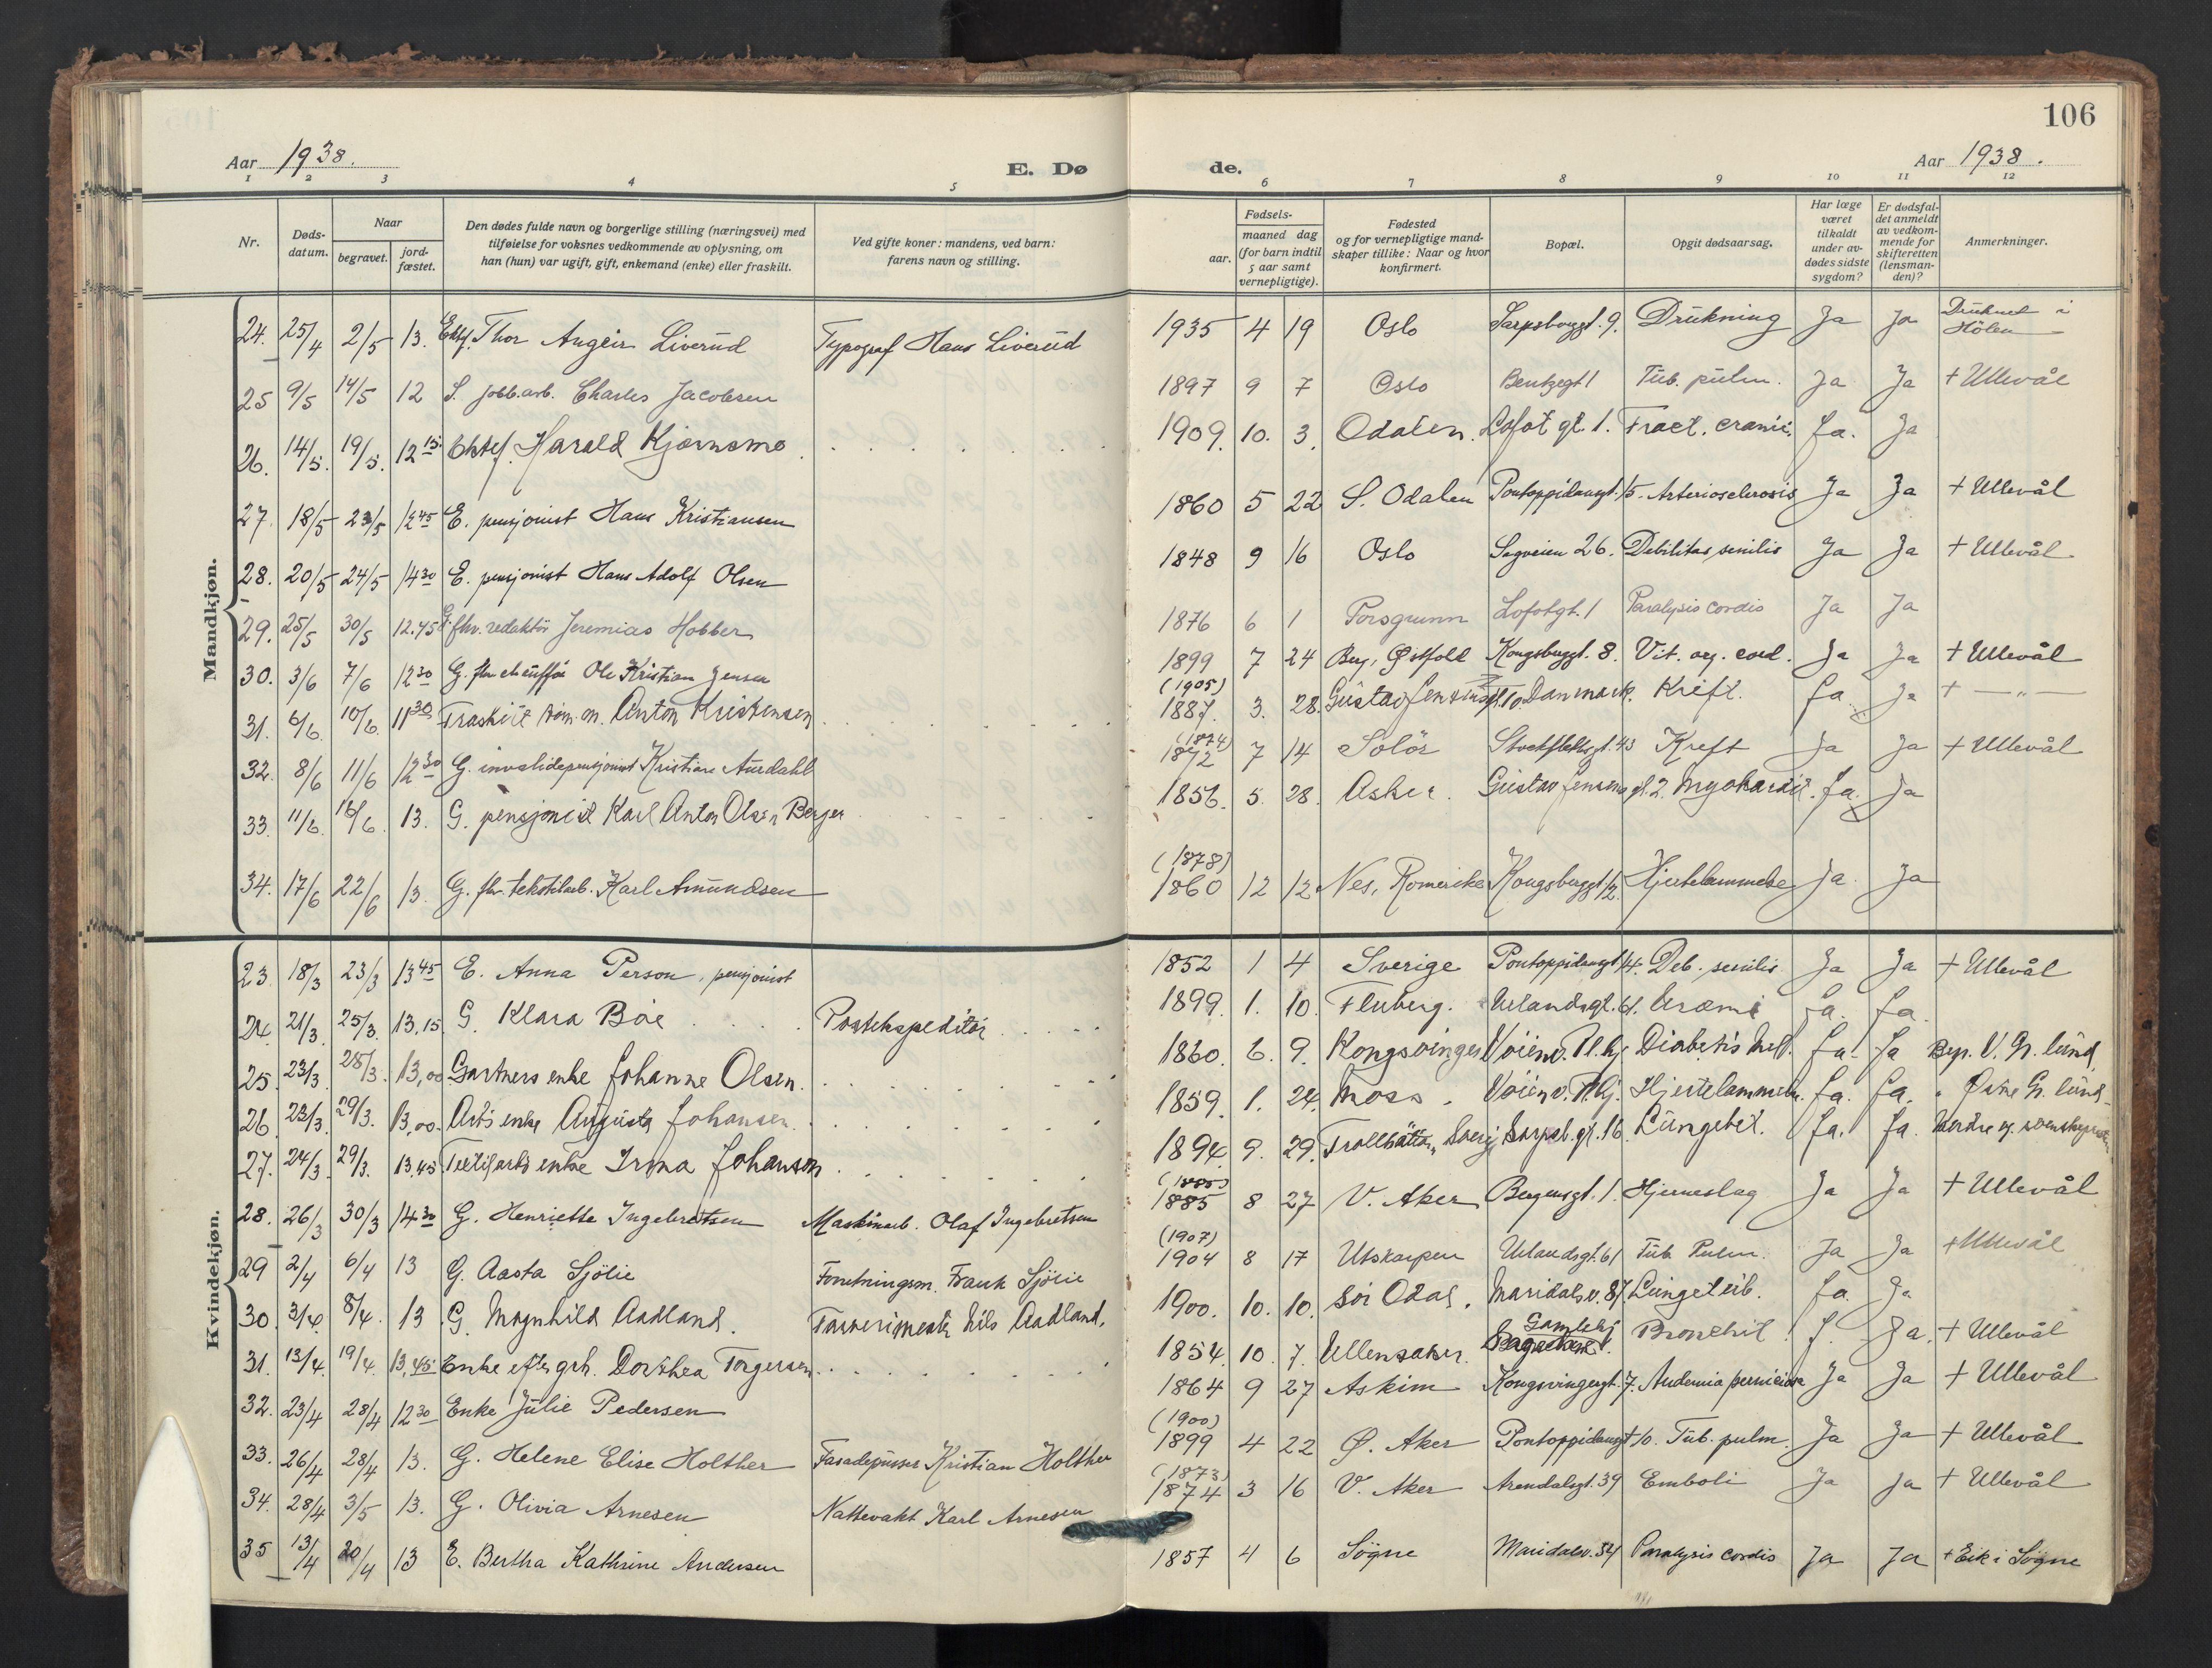 106
Aar 1938. E. Dø de. Aar 1938.
1 2 3 4 5 6 7 8 9 10 11 12
Nr.
Døds-datum.
Naar
begravet.
jord-fæstet.
Den dødes fulde navn og borgerlige stilling (næringsvei) med
tilføielse for voksnes vedkommende av oplysning, om
han (hun) var ugift, gift, enkemand (enke) eller fraskilt.
Ved gifte koner: mandens, ved barn:
farens navn og stilling.
Fødsels-
aar.
maaned dag
(for barn indtil
5 aar samt
vernepligtige).
Fødested
og for vernepligtige mand-
skaper tillike: Naar og hvor
konfirmert.
Bopæl.
Opgit dødsaarsag.
Har læge
været
tilkaldt
under av-
dødes sidste
sygdom?
Er dødsfal-
det anmeldt
av vedkom-
mende for
skifteretten
(lensman-
den)?
Anmerkninger.
Mandkjøn.
24. 25/4 2/5 13. Ektef. Thor Asgeir Liverud Typograf Hans Liverud 1935 4 19 Oslo Sarpsborggt. 9. Drukning Ja Ja Druknet i Hølen
25 9/5 14/5 12 S. jobb.arb. Charles Jacobsen 1897 9 7 Oslo Bentzegt 1 Tub. pulm. Ja Ja + Ullevål
26. 14/5. 19/5. 12 15 Ektef. Harald Kjørnsmo 1909. 10. 3. Odalen. Lofot gt. 1. Fract. cranii. Ja. Ja
27. 18/5 23/5 12 45 E. pensjonist Hans Kristiansen 1860 5 22 S. Odalen Pontoppidansgt. 15. Arteriosclerosis Ja Ja + Ullevål
28. 20/5 24/5 14 30 E. pensjonist Hans Adolf Olsen 1848 9 16 Oslo Sagveien 26. Debilitas senilis Ja Ja + Ullevål
29. 25/5 30/5 12.45 G. fhv. redaktör Jeremias Hobber 1876 6 1 Porsgrunn Lofotgt. 1 Paralysis cordis Ja Ja
30. 3/6 7/6 12 30 G. fhv. chauffør Ole Kristian Jensen 1899 7 24 Berg, Østfold Kongsbggt. 8. Vit. org. cord. Ja Ja + Ullevål
31. 6/6. 10/6. 11 30 Fraskilt töm.m. Anton Kristensen (1905) 1887. 3. 28. Gustav Jensensgt. 10. Danmark. Kreft. Ja. Ja + — " —
32. 8/6 11/6 12 30 G. invalidepensjonist Kristian Aurdahl (1874) 1872 7 14 Solör Stockflethsgt. 43 Kreft Ja Ja + Ullevål
33. 11/6. 16/6. 13. G. pensjonist Karl Anton Olsen Berger 1856. 5. 28. Asker. Gustav Jensens gt. 2. Myokardit. Ja. Ja
34. 17/6 22/6 13. G. fhv. tekstilarb. Karl Amundsen (1878) 1860 12 12 Nes, Romerike Kongsberggt. 12. Hjertelammelse Ja Ja
Kvindekjøn.
23. 18/3 23/3 13 45 E. Anna Person, pensjonist 1852 1 4 Sverige Pontoppidansgt. 14. Deb. senilis Ja Ja + Ullevål
24. 21/3. 25/3. 13.15. G. Klara Böe Postekspeditör 1899. 1. 10. Fluberg. Uelandsgt. 61. Uræmi Ja. Ja.
25. 23/3. 28/3. 13,00 Gartners enke Johanne Olsen. 1860. 6. 9. Kongsvinger Vöienv. Pl.hj. Diabetis mel. Ja. Ja Begr. V. Gr. lund
26. 23/3. 29/3. 13,00. Arb's enke Augusta Johansen. 1859. 1. 24. Moss. Vöienv. Pl.hj. Hjertelammelse. Ja. Ja. " Östre Gr. lund
27. 24/3. 29/3. 13.45 Textilarb's enke Irma Johanson 1894. 9. 29. Trollhättan, Sverig. Sarpsb. gt. 16. Lungebet. Ja. Ja.
28. 26/3 30/3 14 30 G. Henriette Ingebretsen Maskinarb. Olaf Ingebretsen (1885) 1885 8 27 V. Aker Bergensgt. 1. Hjerneslag Ja Ja + Ullevål
29 2/4 6/4 13 G. Aasta Sjölie Forretningsm. Frank Sjölie (1907) 1904 8 17 Utskarpen Uelandsgt. 61 Tub. Pulm. Ja Ja + Ullevål
30. 3/4. 8/4. 13 G. Magnhild Aadland. Farverimester Nils Aadland. 1900. 10. 10. Sör Odal. Maridalsv. 87. Lungetub. Ja. Ja
31. 13/4. 19/4. 13,45. Enke efter grh. Dorthea Torgersen 1854. 10. 7. Ullensaker. Gamlehj. Bronchit J. Ja. + Ullevål
32. 23/4 28/4 12 30 Enke Julie Pedersen 1864 9 27 Askim Kongsvingergt. 7. Andemia perniciosa Ja Ja + Ullevål
33. 26/4 28/4 13. G. Helene Elise Holther Fasadepusser Kristian Holther (1900) 1899 4 22 Ø. Aker Pontoppidansgt 10. Tub. pulm. Ja Ja + Ullevål
34. 28/4 3/5 13. G. Olivia Arnesen Nattevakt Karl Arnesen (1873) 1874 3 16 V. Aker Arendalsgt. 39 Emboli Ja Ja + Ullevål
35 13/4 20/4 13 E. Bertha Kathrine Andersen 1857 4 6 Sögne Maridalsv. 54 Paralysis cordis Ja Ja + Eik i Sögne